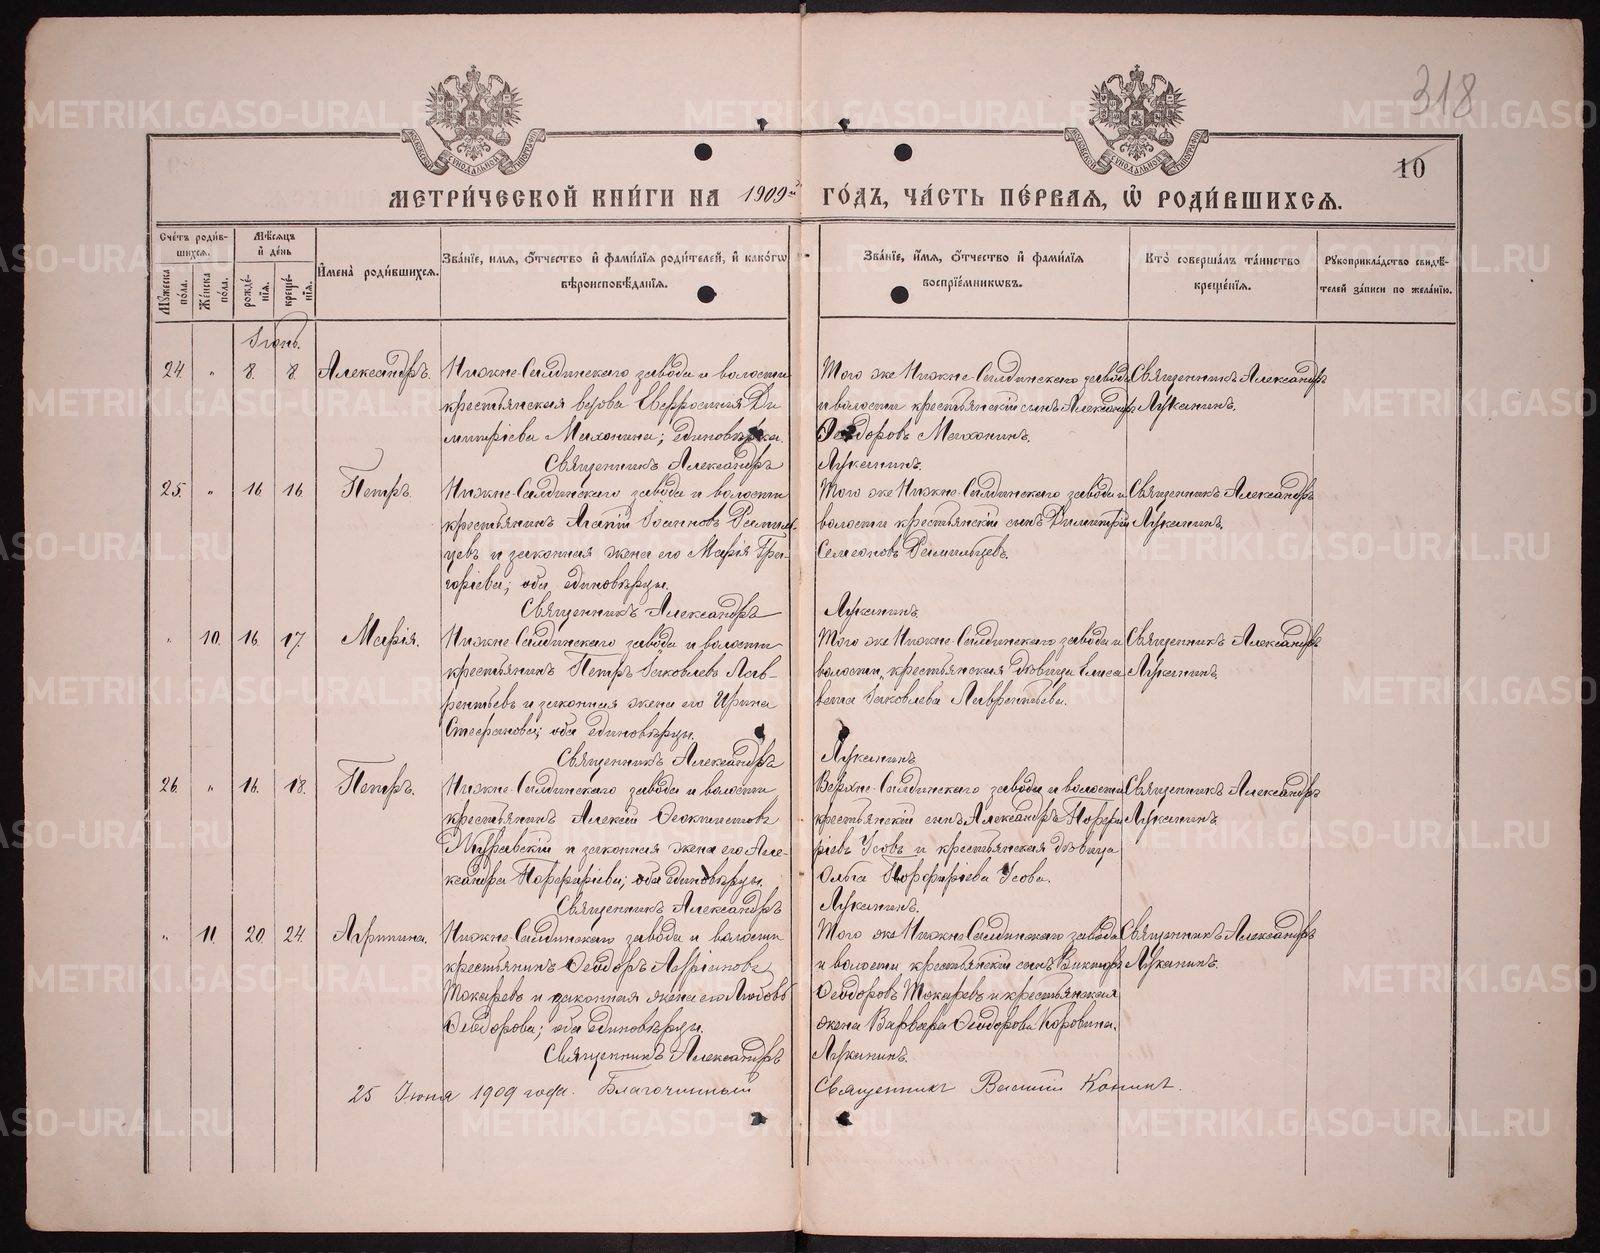 318
10
МЕТРИ́ЧЕСКОЙ КНИ́ГИ НА 1909й ГО́ДЪ, ЧА́СТЬ ПЕ́РВАЯ, Ѽ РОДИ́ВШИХСЯ.
Сче́тъ роди́в-
шихся.
Мꙋ́жеска по́ла.
Же́нска по́ла.
Мѣ́сяцъ и де́нь
рожде́-нїя.
креще́-нїя.
И҆мена̀ роди́вшихся.
Зва́нїе, и҆мя, ѻ҆́тчество и҆ фами́лїя роди́телей, и҆ како́гѡ
вѣроисповѣ́данїя.
Зва́нїе, и҆́мя, ѻ҆́тчество и҆ фами́лїя
воспрїе́мникѡвъ.
Кто̀ соверша́лъ та́инство
креще́нїя.
Рꙋкоприкла́дство свидѣ́-
телей за́писи по жела́нїю.
Іюнь.
24. " 8. 8. Александръ.
Нижне-Салдинскаго завода и волости
крестьянская вдова Евфросинія Ди
митріева Маханина; единовѣрка.
Священникъ Александръ
Того же Нижне-Салдинскаго завода
и волости крестьянскій сынъ Александръ
Ѳеодоровъ Маханинъ.
Луканинъ.
Священникъ Александръ
Луканинъ.
25. " 16. 16. Петръ.
Нижне-Салдинскаго завода и волости
крестьянинъ Агапій Іоанновъ
и законная жена его Марія Гри-
горіева; оба единовѣрцы.
Священникъ Александръ
Того же Нижне-Салдинскаго завода и
волости крестьянскій сынъ Димитрій
Семеоновъ
Луканинъ.
Священникъ Александръ
Луканинъ.
" 10. 16. 17. Марія.
Нижне-Салдинскаго завода и волости
крестьянинъ Петръ Іаковлевъ Лав-
рентьевъ и законная жена его Ирина
Стефанова; оба единовѣрцы.
Священникъ Александръ
Того же Нижне-Салдинскаго завода и
волости, крестьянская дѣвица Елиса
вета Іаковлева Лаврентьева.
Луканинъ
Священникъ Александръ
Луканинъ.
26. " 16. 18. Петръ.
Нижне-Салдинскаго завода и волости
крестьянинъ Алексій Ѳеоктистовъ
Журавскій и законная жена его Але-
ксандра Порфиріева; оба единовѣрцы.
Священникъ Александръ
Верхне-Салдинскаго завода и волости
крестьянскій сынъ Александръ Порфи
ріевъ Усовъ и крестьянская дѣвица
Ольга Порфиріева Усова.
Луканинъ.
Священникъ Александръ
Луканинъ.
" 11. 20. 24. Агрипина.
Нижне-Салдинскаго завода и волости
крестьянинъ Ѳеодоръ Адріановъ
Токаревъ и законная жена его Любовь
Ѳеодорова; оба единовѣрцы.
Священникъ Александръ
Того же Нижне-Салдинскаго завода
и волости, крестьянскій сынъ Викторъ
Ѳеодоровъ Токаревъ и крестьянская
жена Варвара Ѳеодорова Коровина.
Луканинъ.
Священникъ Александръ
Луканинъ.
25 Іюня 1909 года. Благочинный Священникъ